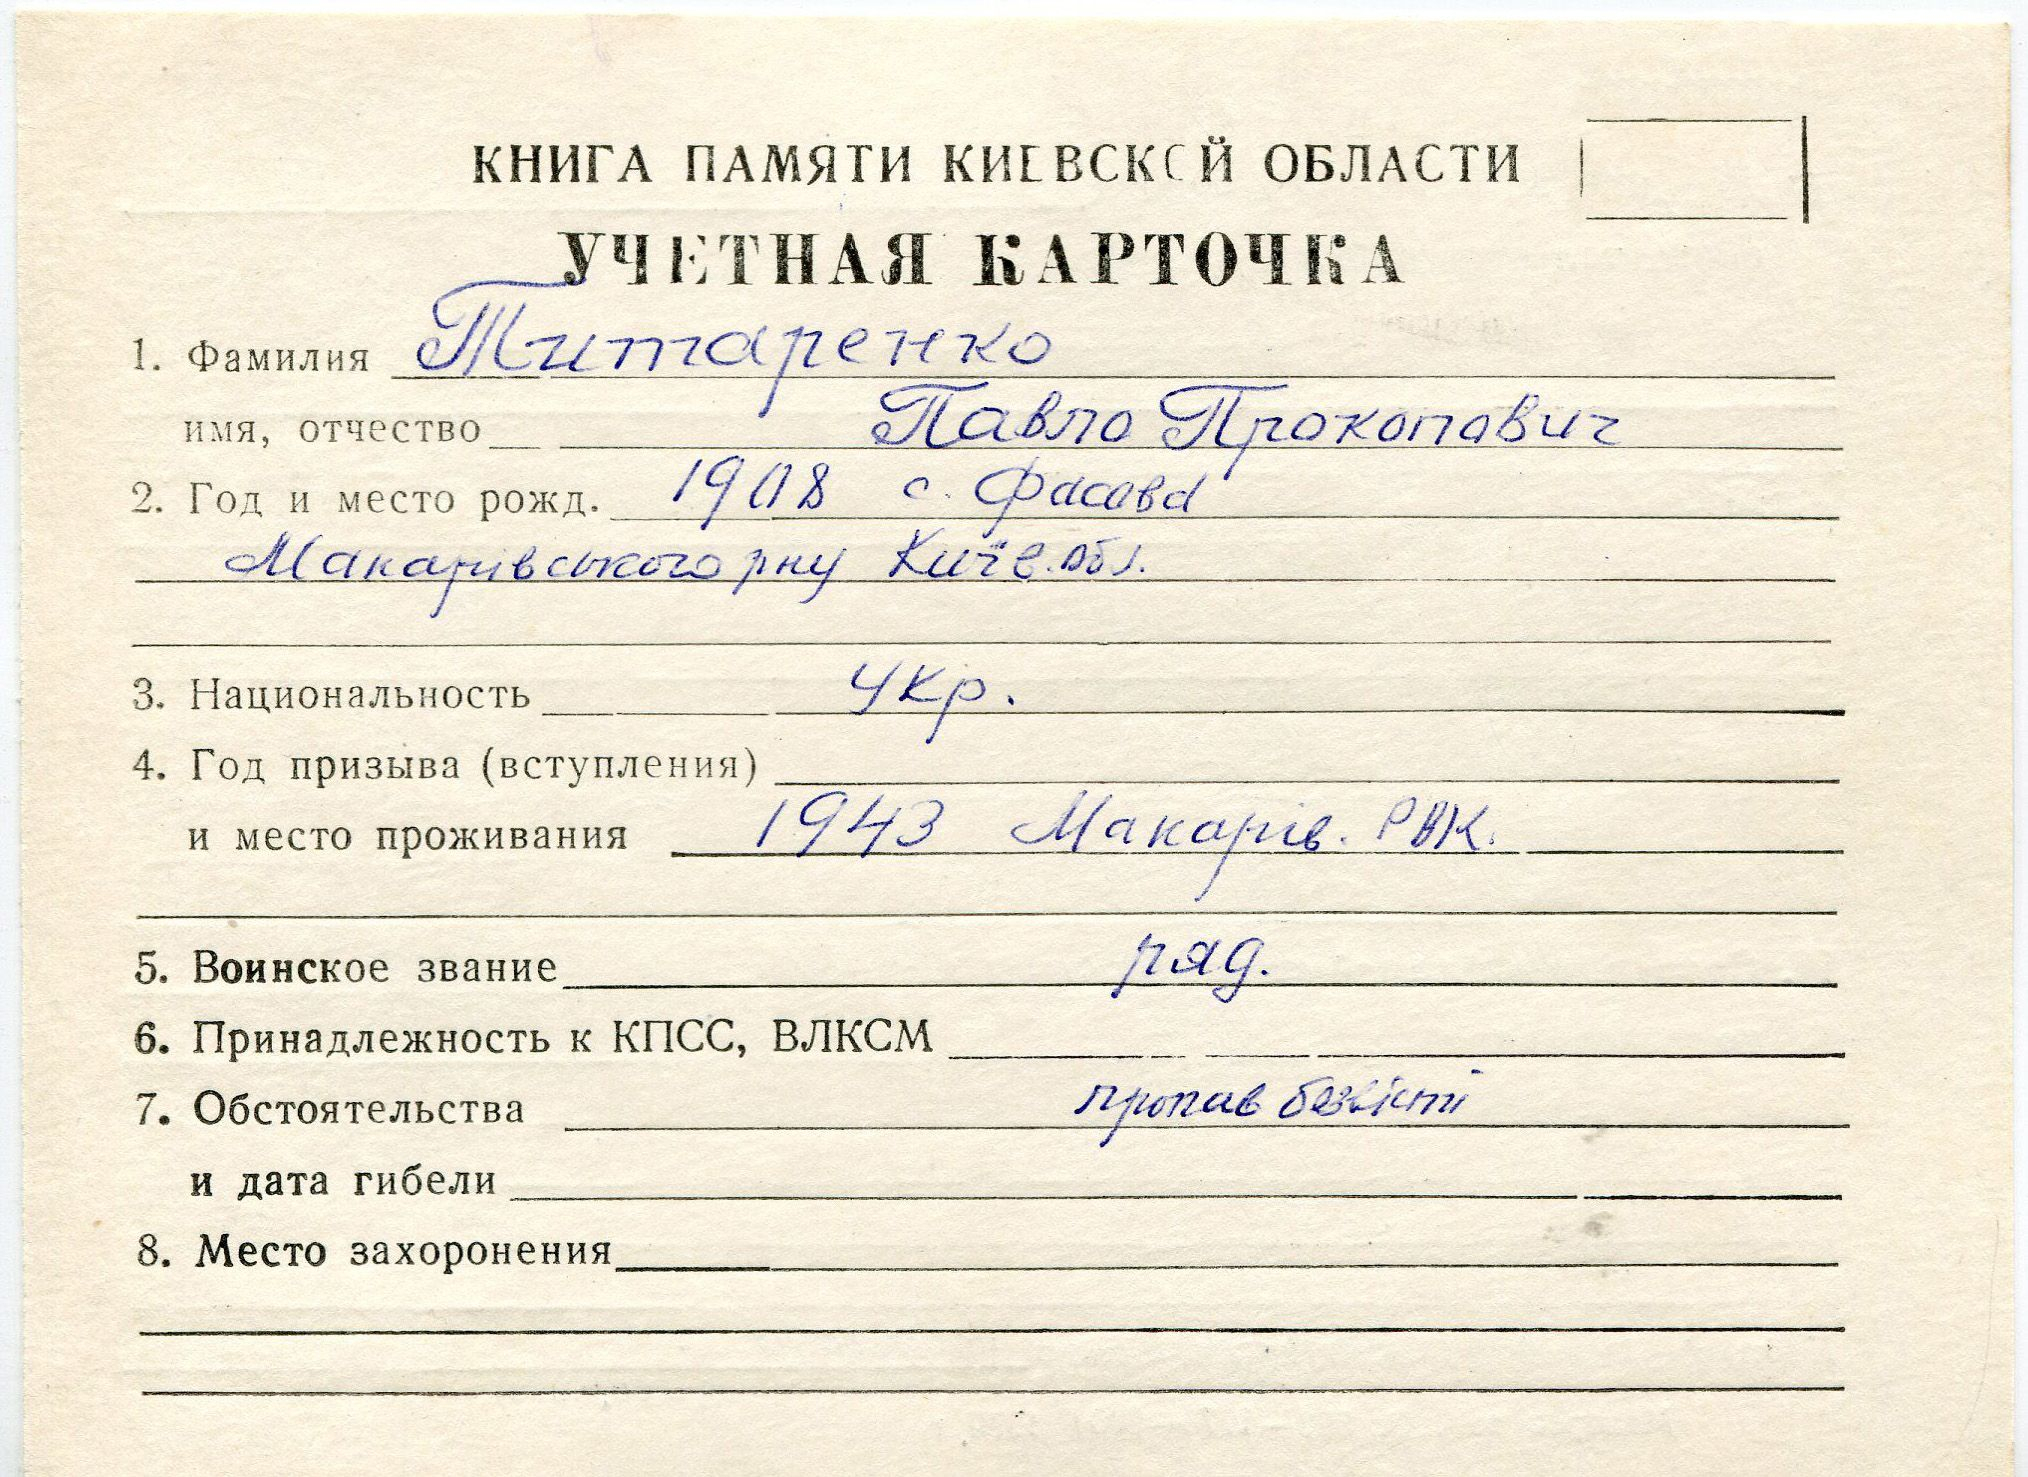 КНИГА ПАМЯТИ КИЕВСКОЙ ОБЛАСТИ
УЧЕТНАЯ КАРТОЧКА
1. Фамилия Титаренко
имя, отчество Павло Прокопович
2. Год и место рожд. 1908 с. Фасова
Макарівського рну Київ. обл.
3. Национальность укр.
4. Год призыва (вступления)
и место проживания 1943 Макарів. РВК.
5. Воинское звание ряд.
6. Принадлежность к КПСС, ВЛКСМ
7. Обстоятельства пропав безвісті
и дата гибели
8. Место захоронения